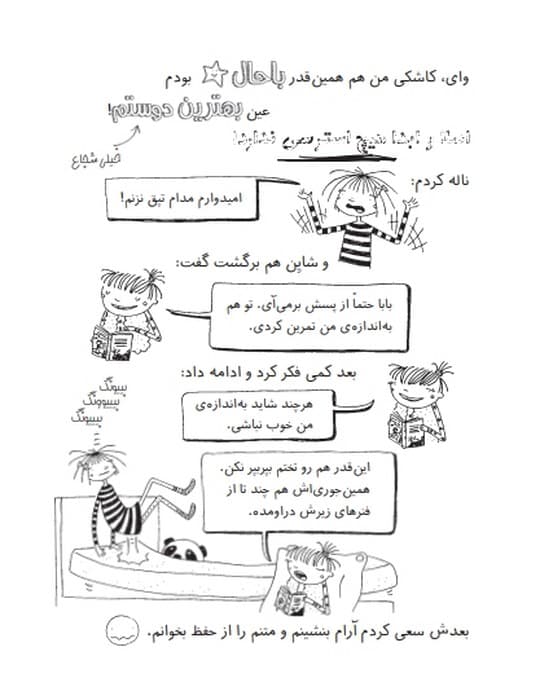 وای، کاشکی من هم همین‌قدر باحال بودم
عین بهترین دوستم!
خیلی شجاع
اصلاً و ابداً هیچ استرسی
ناله کردم:
امیدوارم مدام تپق نزنم!
و شاپِن هم برگشت گفت:
بابا حتماً از پسش برمی‌آی. تو هم
به‌اندازه‌ی من تمرین کردی.
بعد کمی فکر کرد و ادامه داد:
هرچند شاید به‌اندازه‌ی
من خوب نباشی.
بییونگ
بییوونگ
بییونگ
این‌قدر هم رو تختم بپربپر نکن.
همین‌جوری‌اش هم چند تا از
فنرهای زیرش دراومده.
بعدش سعی کردم آرام بنشینم و متنم را از حفظ بخوانم.